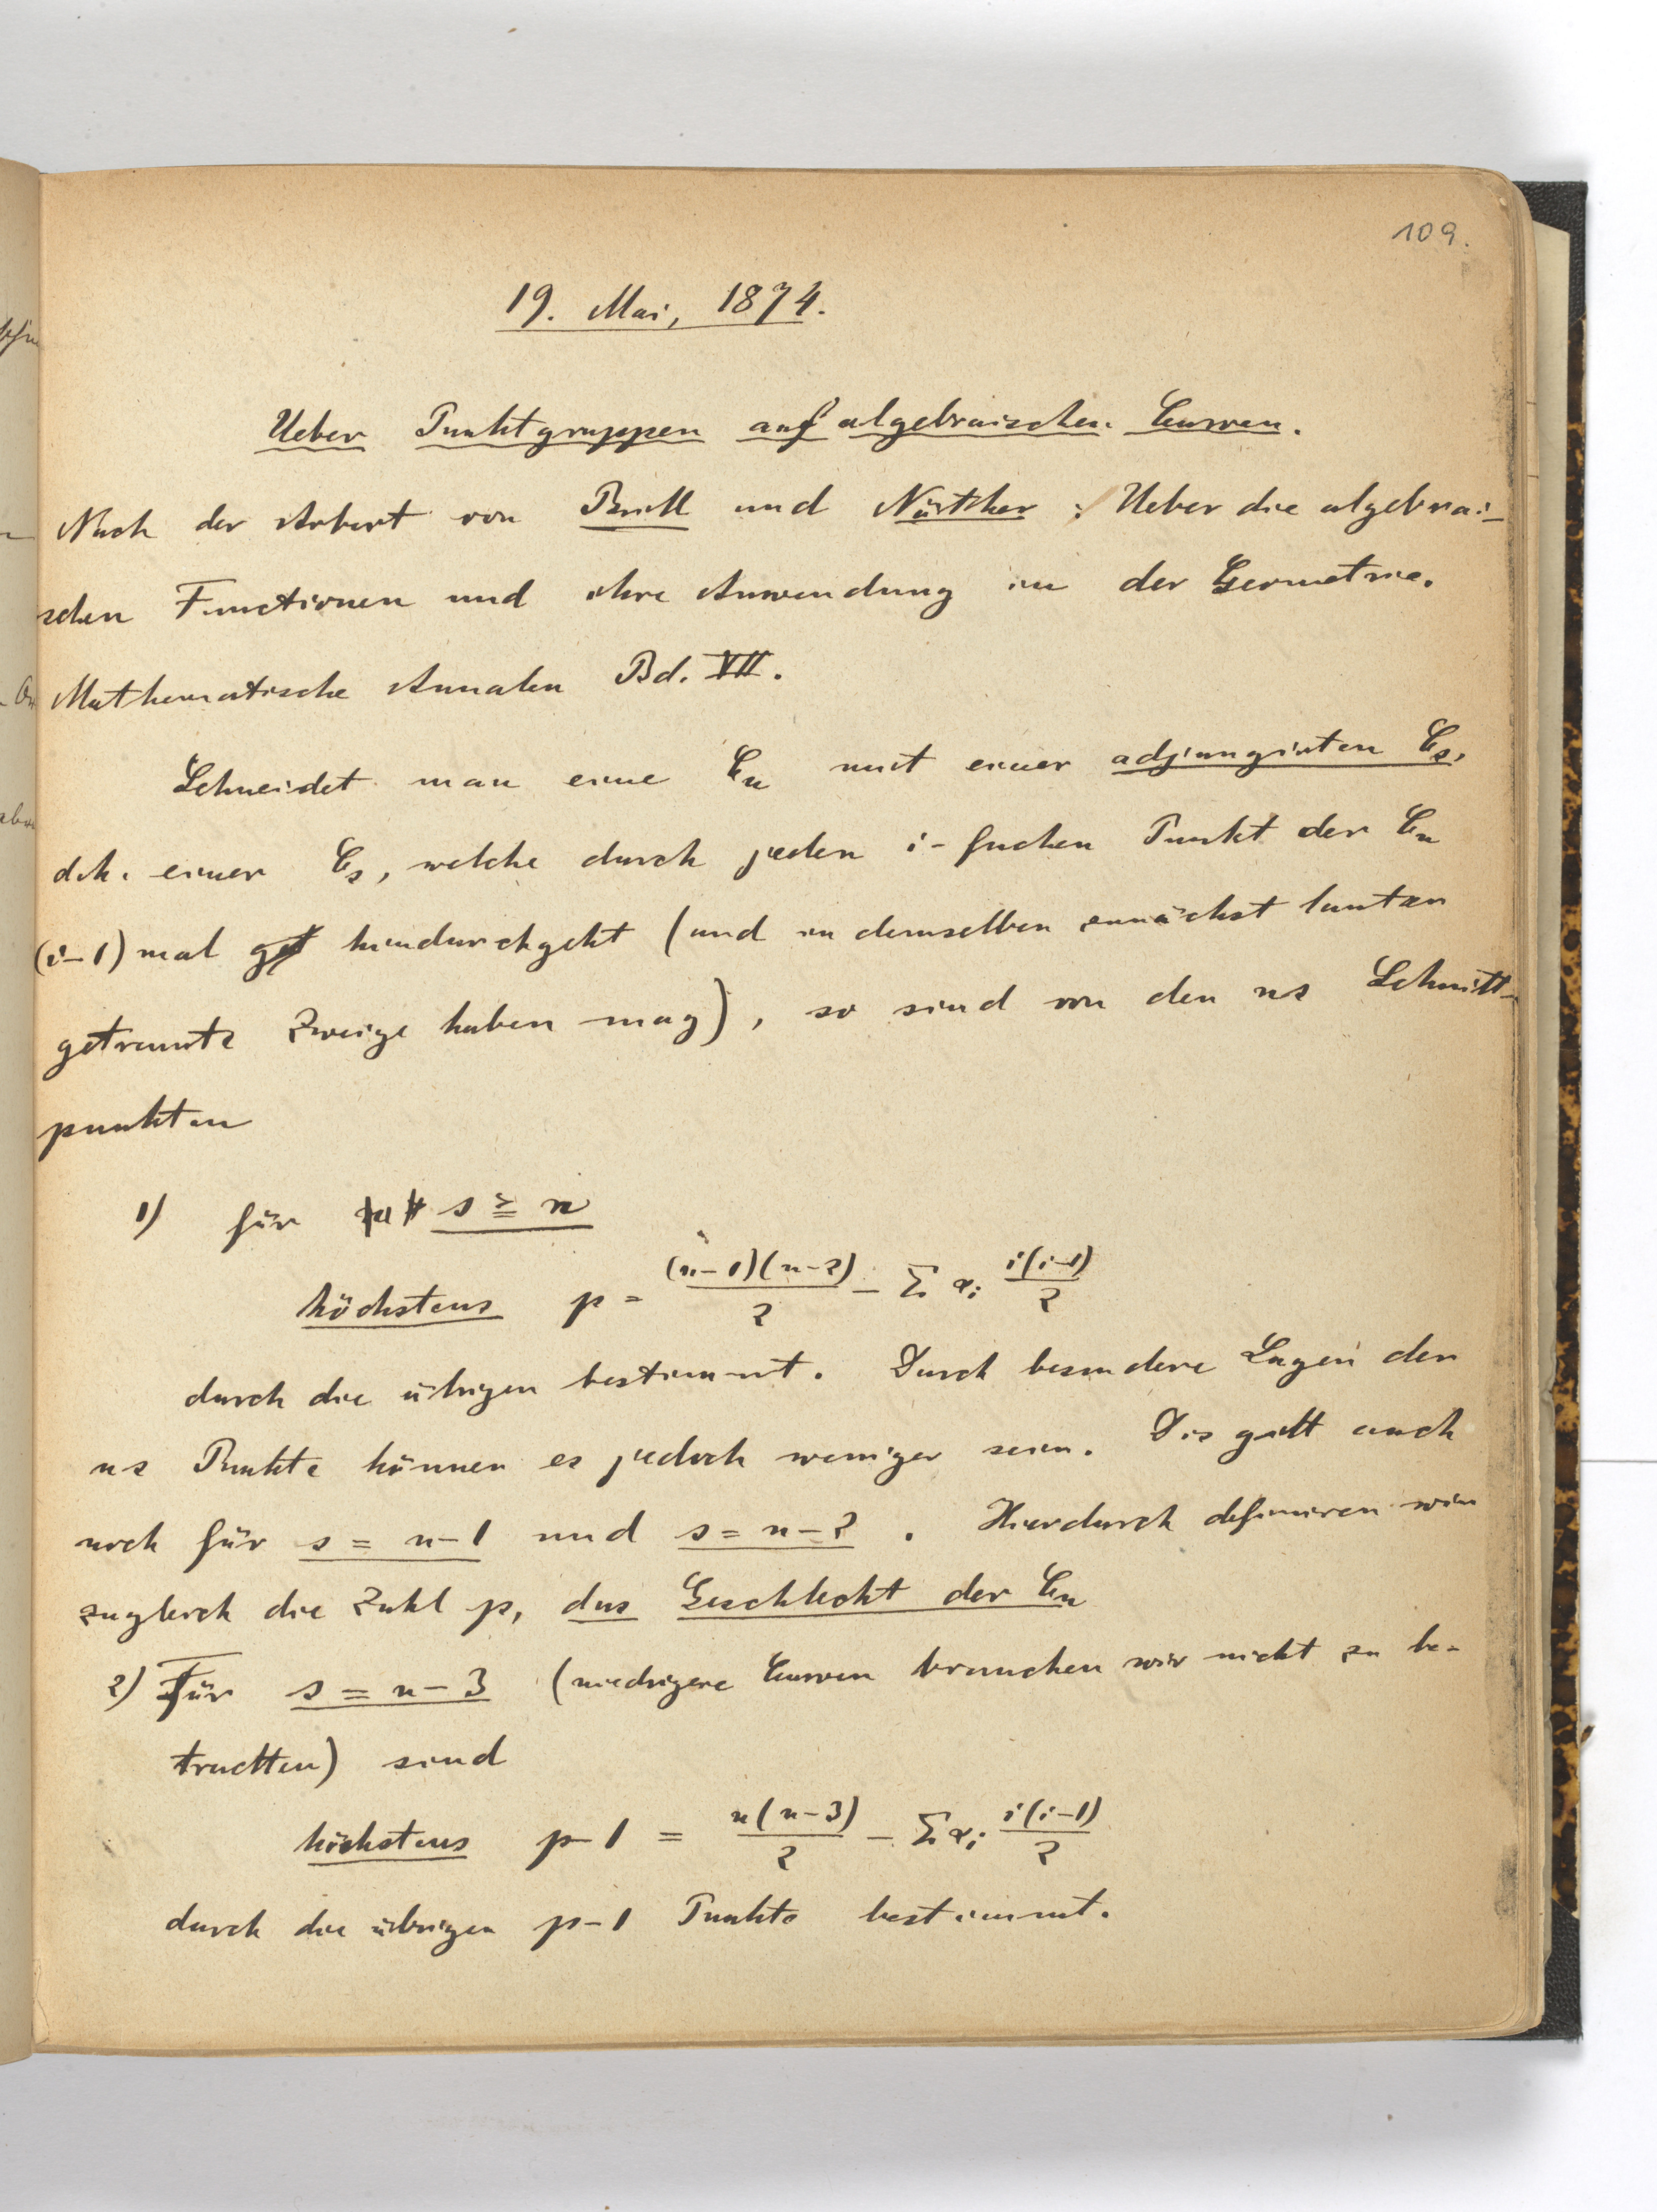 109.
19. Mai, 1874.
Ueber Punktgruppen auf algebraischen Curven.
Nach der Arbeit von Brill und Nöther: Ueber die algebrai-
schen Functionen und ihre Anwendung in der Geometrie.
Mathematische Annalen Bd. VII.
Schneidet man eine C_n mit einer adjungirten C_s,
d.h. einer C_s, welche durch jeden i-fachen Punkt der C_n
(i-1) mal hindurchgeht (und in demselben zunächst lauter
getrennte Zweige haben mag), so sind von den ns Schnitt-
punkten
1) für s ≧ n
höchstens p = (n-1)(n-2)/2 - Σ α_i i(i-1)/2
durch die übrigen bestimmt. Durch besondere Lagen der
ns Punkte können es jedoch weniger sein. Dis gilt auch
noch für s = n-1 und s = n-2. Hierdurch definiren wir
zugleich die Zahl p, das Geschlecht der C_n
2) Für s = n-3 (niedrigere Curven brauchen wir nicht zu be-
trachten) sind
höchstens p-1 = n(n-3)/2 - Σ α_i i(i-1)/2
durch die übrigen p-1 Punkte bestimmt.